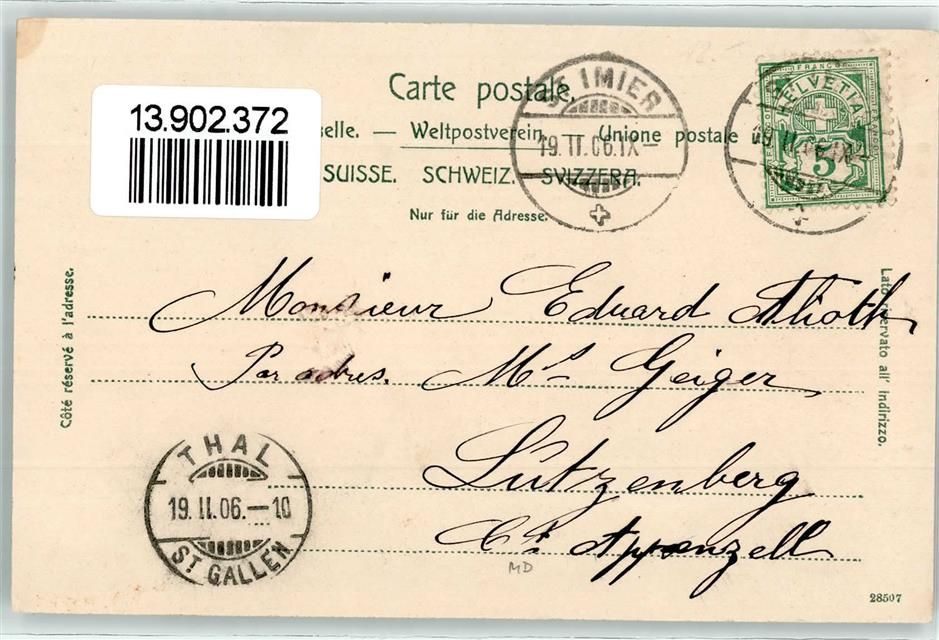 13.902.372
Carte postale.
selle. — Weltpostverein. — Unione postale
SUISSE. SCHWEIZ. SVIZZERA.
Nur für die Adresse.
ST IMIER
19.II.06.IX–
FRANCO
HELVETIA
5
Côté réservé à l'adresse.
Lato riservato all' indirizzo.
Monsieur Eduard Alioth
Par adres. Mrs Geiger
Lutzenberg
Ct. Appenzell
THAL
19.II.06.–10
ST GALLEN
MD
28507